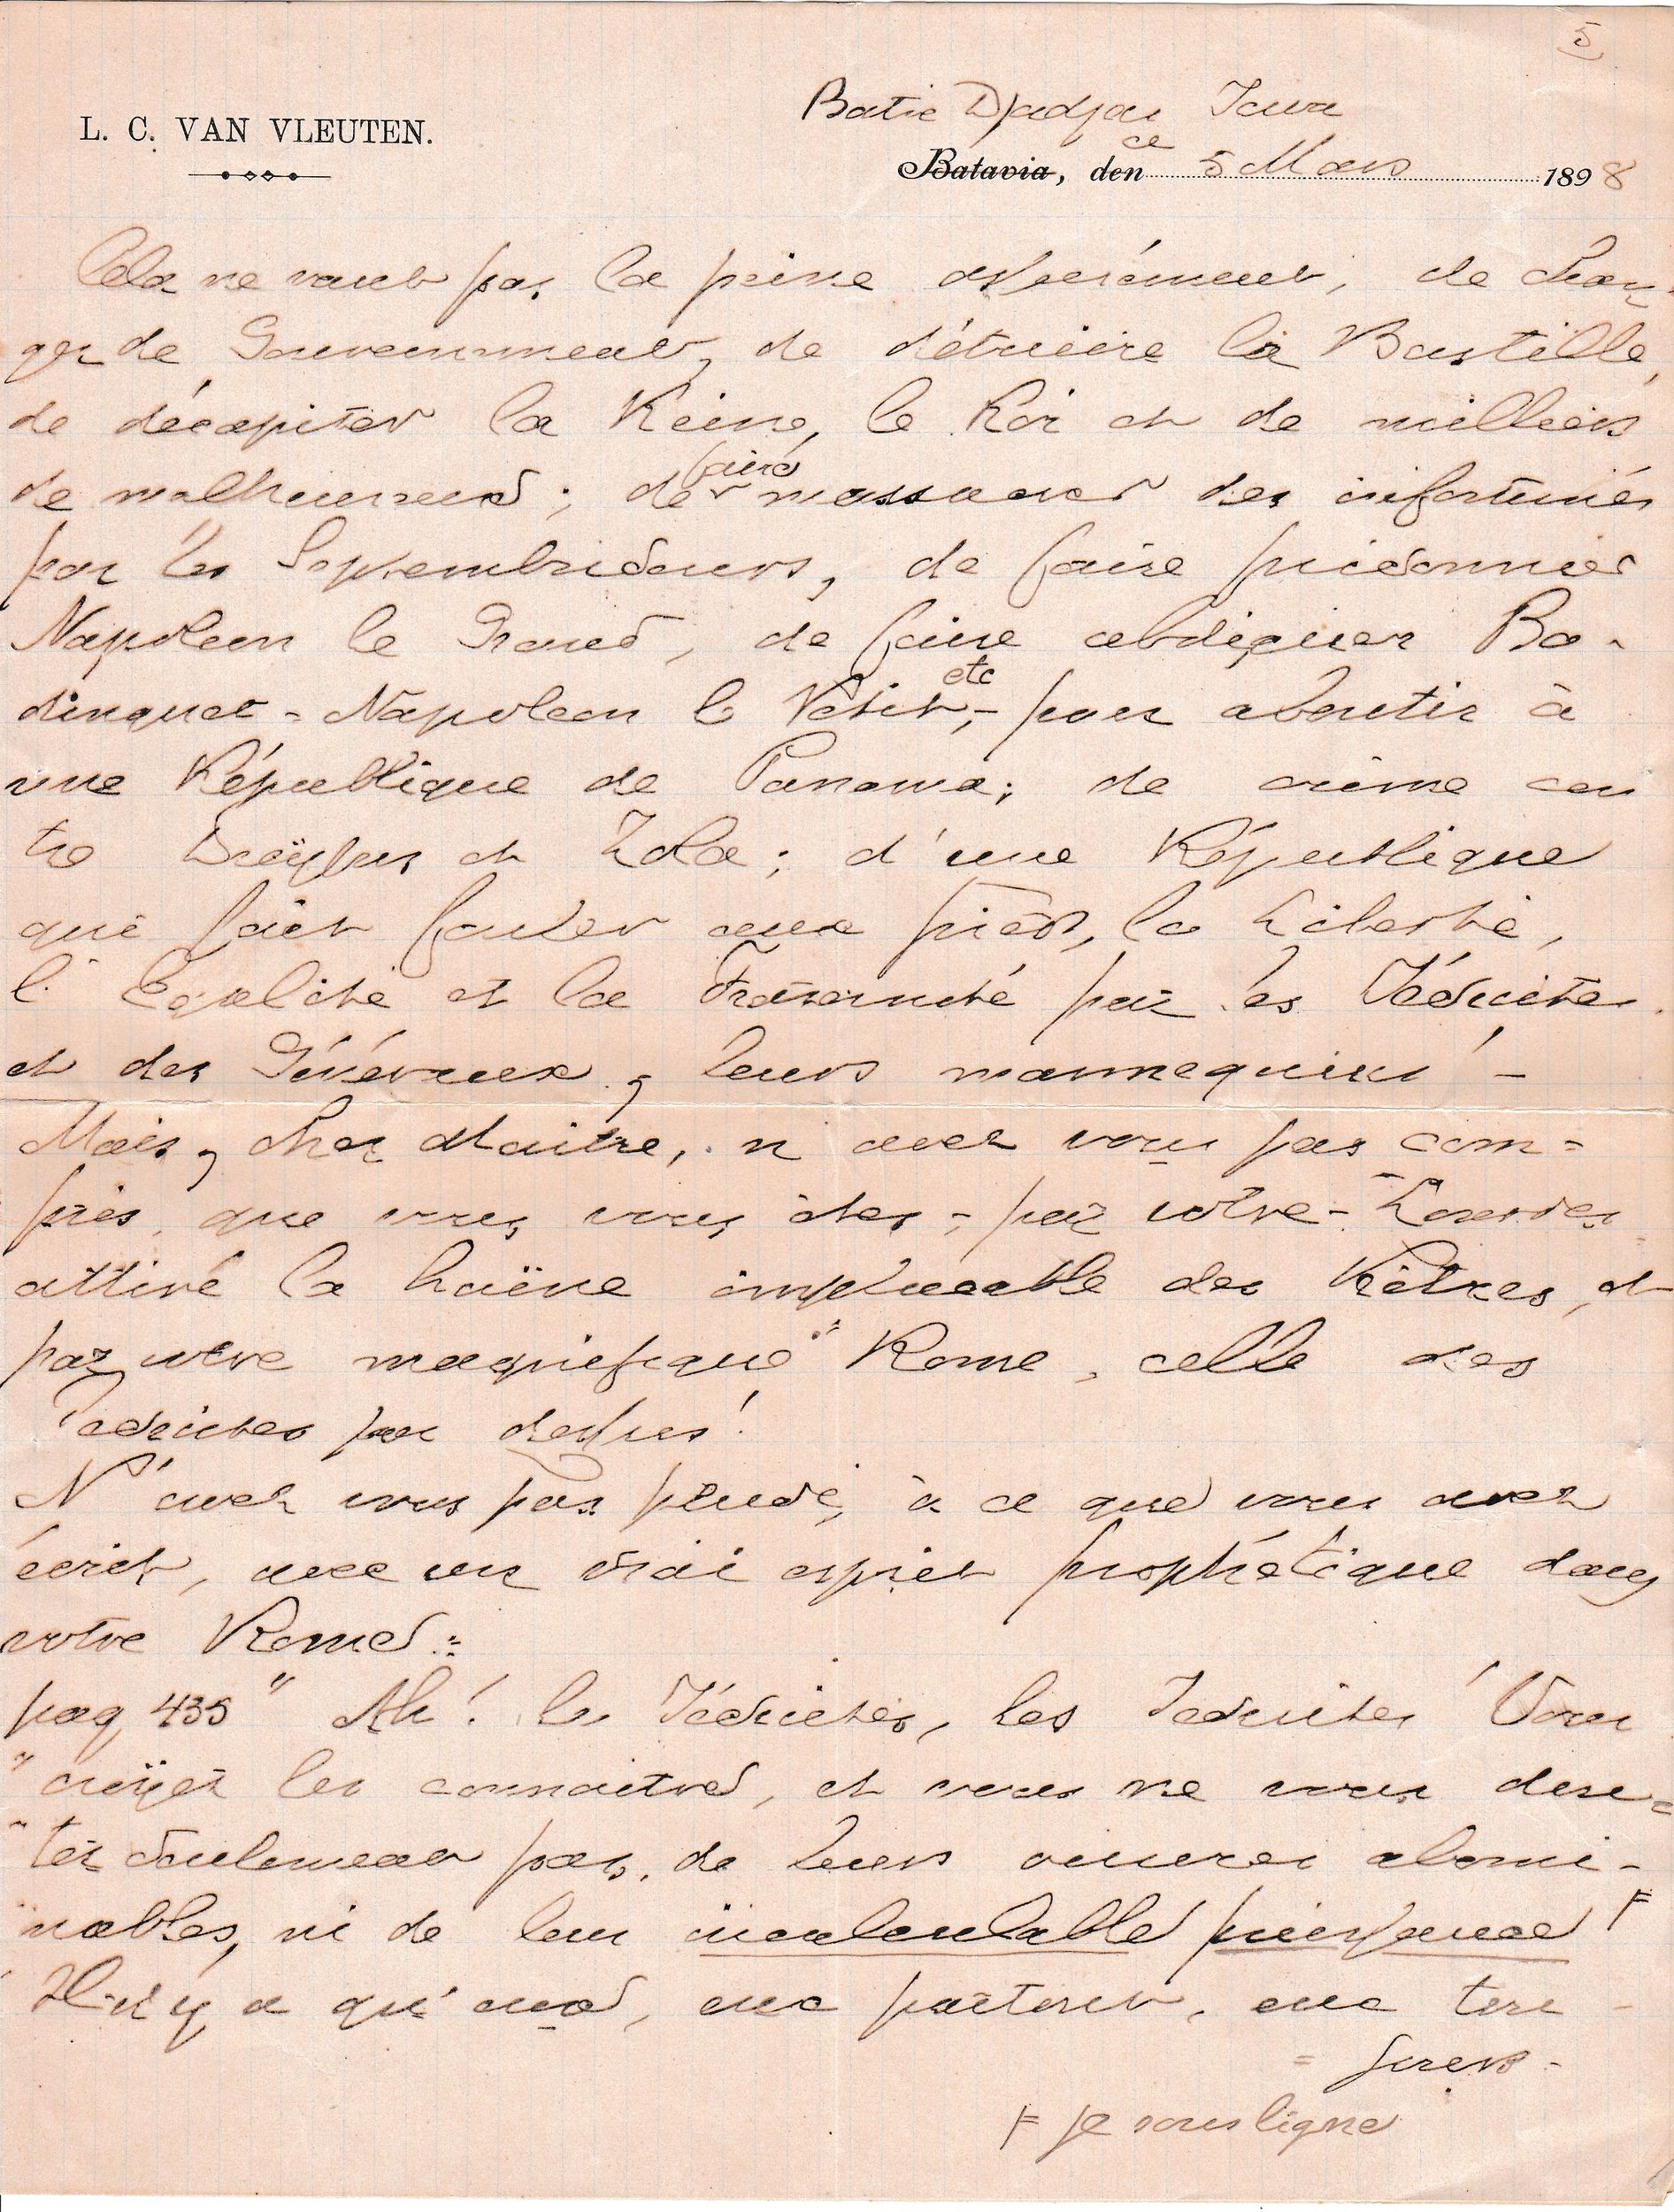 5
L. C. VAN VLEUTEN.
Batie Djadjar Java
ce
Batavia, den 5 Mars 1898
Cela ne vaut pas la peine assurément, de chan-
ger de Gouvernement, de détruire la Bastille,
de décapiter la Reine, le Roi et de milliers
faire
de malheureux; de massacrer des infortunés
par les Septembriseurs, de faire prisonnier
Napoleon le Grand, de faire abdiquer Ba-
etc
dinguet - Napoleon le Petit, - pour aboutir à
une République de Panama; de crime con
tre Dreÿfus et Zola; d'une République
qui fait fouler aux pieds, la Liberté,
l'Egalité et la Fraternité par les Jésuites
et des Généraux, leurs mannequins! -
Mais, cher Maitre, n'avez vous pas com=
pris, que vous vous êtes, - par votre - Lourdes
attiré la haine implacable des Prêtres, et
par votre magnifique "Rome, celle des
Jesuites par dessus!
N'avez vous pas pensé, à ce que vous avez
écrit, avec un vrai esprit prophétique dans
votre Rome:
pag 435 " Ah! les Jésuites, les Jesuites! Vous
" croÿez les connaitre, et vous ne vous dou=
" tez seulement pas, de leurs œuvres abomi-
"nables, ni de leur incalculable puissance F
Il n'y a qu'eux, eux partout, eux tou -
= jours -
F je souligne